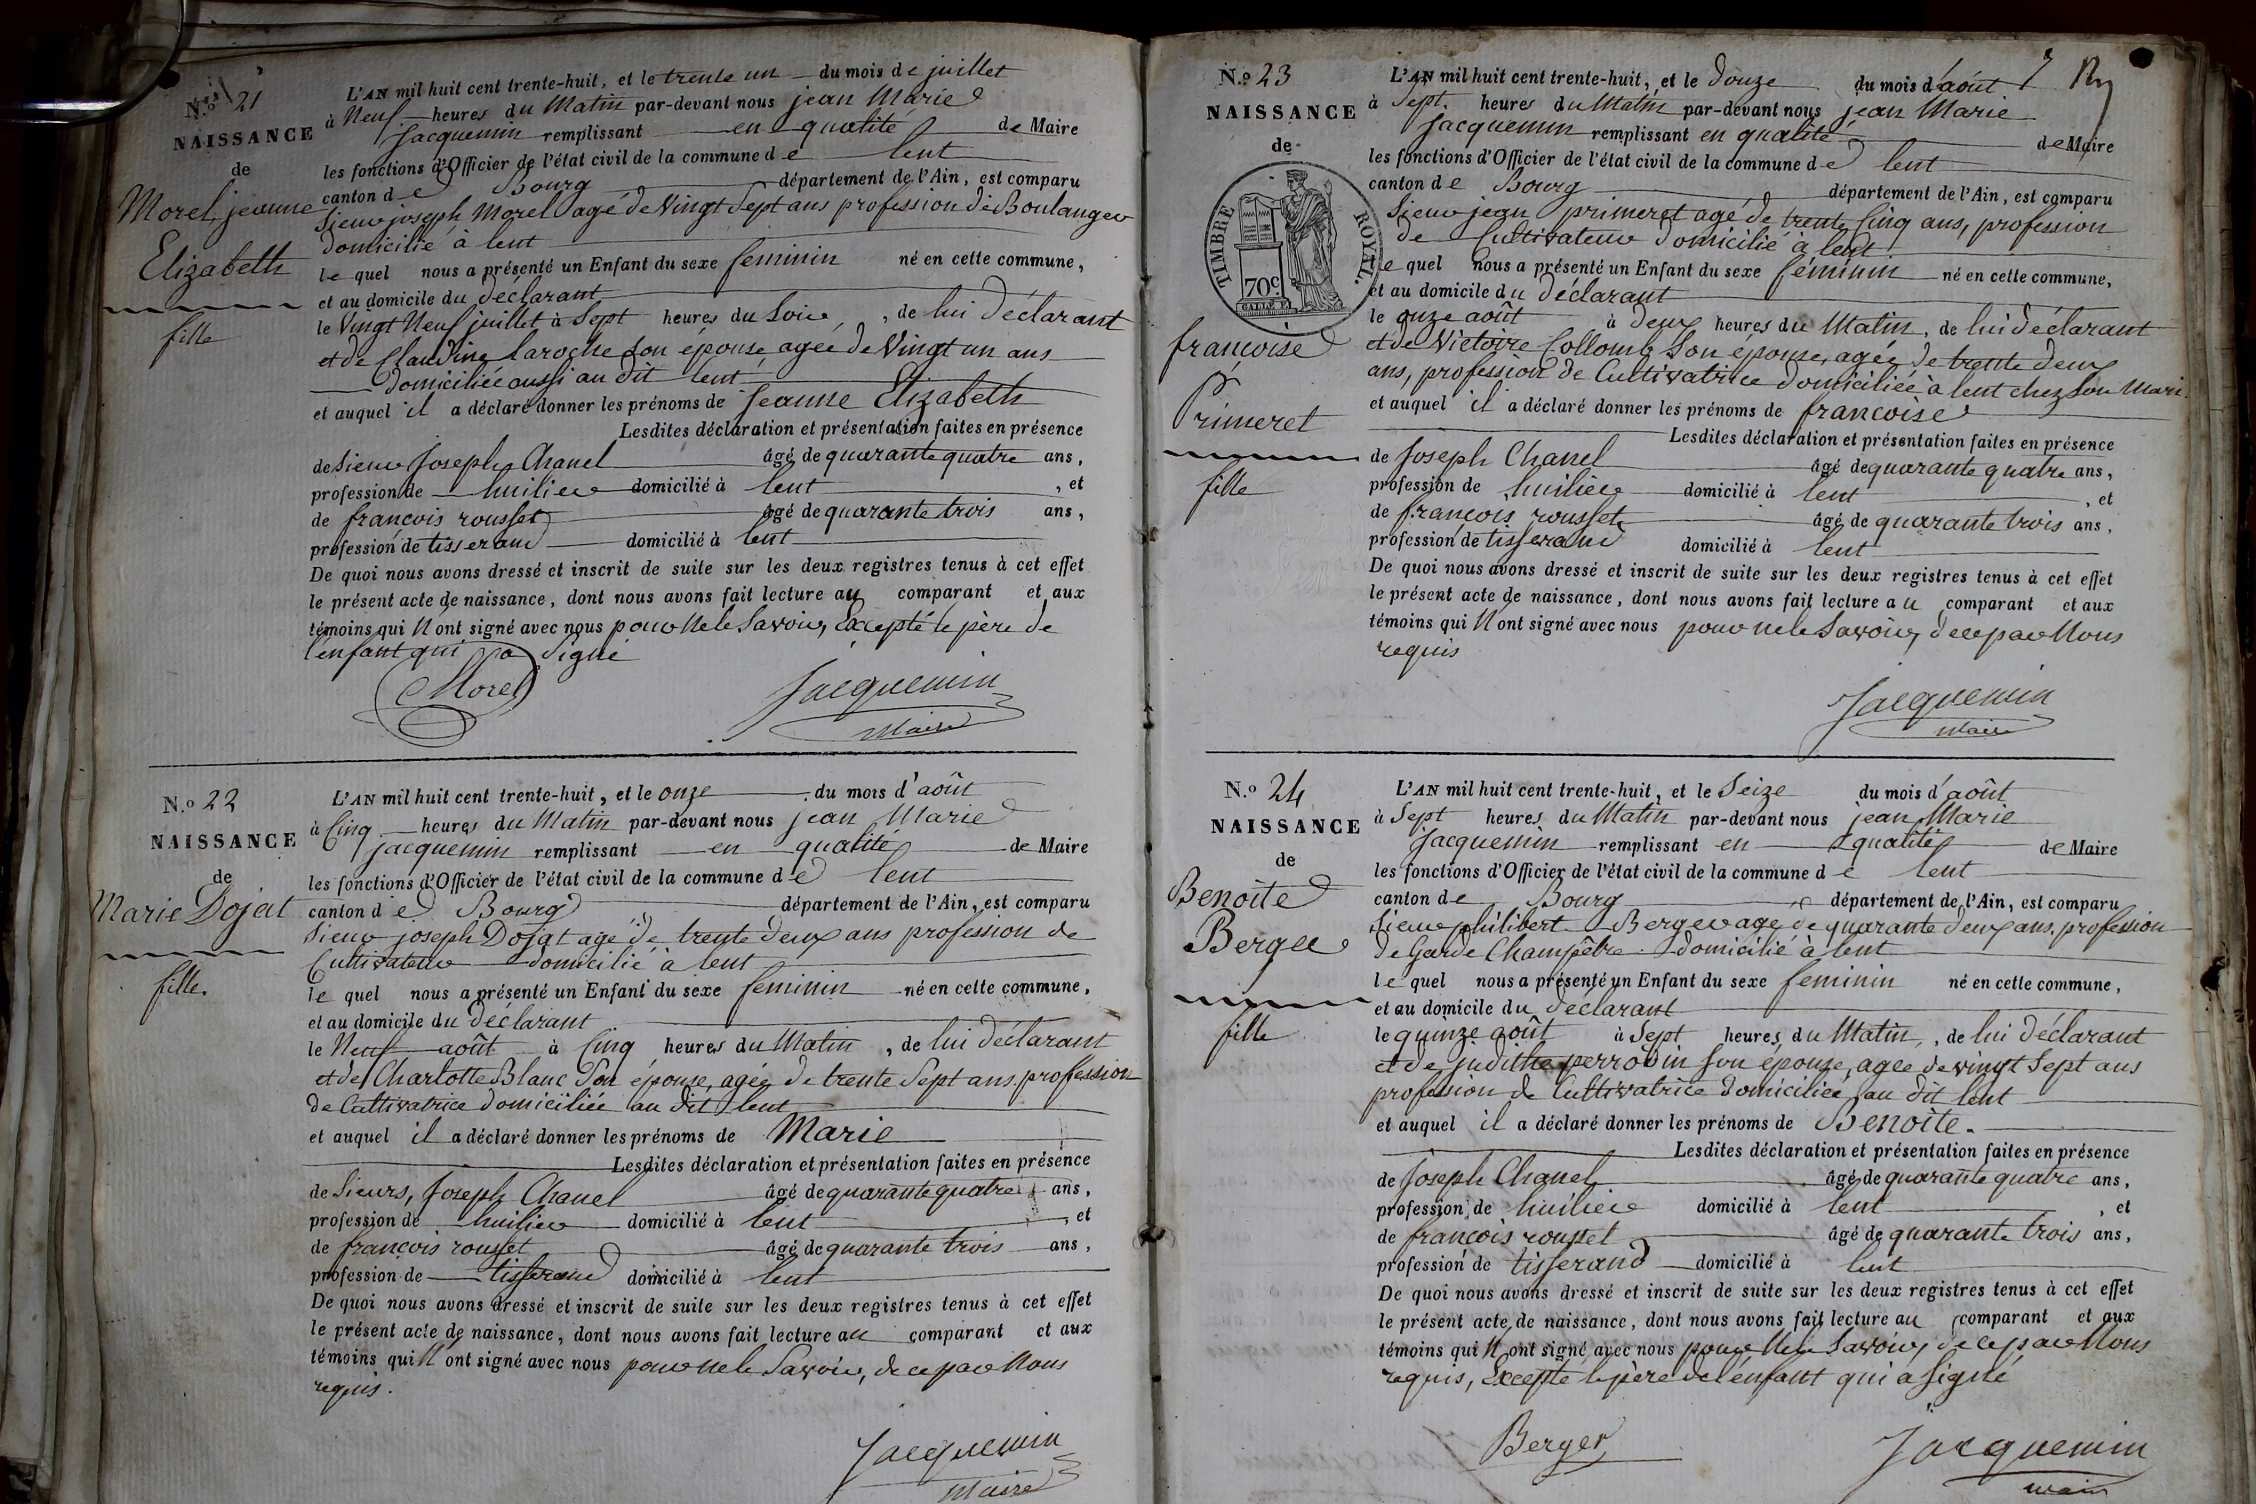 N.º 21
NAISSANCE
de
Morel, jeanne
Elizabeth
fille
L'AN mil huit cent trente-huit, et le trente un du mois de juillet
à Neuf heures du Matin par-devant nous jean Marie
Jacquemin remplissant en qualité de Maire
les fonctions d'Officier de l'état civil de la commune de lent
canton de Bourg département de l'Ain, est comparu
Sieur joseph Morel agé de Vingt Sept ans profession de Boulanger
domicilié à lent
le quel nous a présenté un Enfant du sexe feminin né en cette commune,
et au domicile du déclarant
le Vingt Neuf juillet à Sept heures du Soir, de lui Déclarant
et de Claudine laroche son épouse, agée de Vingt un ans
domiciliée aussi au dit lent
et auquel il a déclaré donner les prénoms de Jeanne Elizabeth
Lesdites déclaration et présentation faites en présence
de Sieur Joseph Chanel âgé de quarante quatre ans,
profession de huilier domicilié à lent, et
de françois rousset âgé de quarante trois ans,
profession de tisserand domicilié à lent
De quoi nous avons dressé et inscrit de suite sur les deux registres tenus à cet effet
le présent acte de naissance, dont nous avons fait lecture au comparant et aux
témoins qui N'ont signé avec nous pour Ne le Savoir, Excepté le père de
l'enfant qui a Signé
Morel Jacquemin
Maire
N.º 22
NAISSANCE
de
Marie Dojat
fille.
L'AN mil huit cent trente-huit, et le onze du mois d'août
à Cinq heures du Matin par-devant nous jean Marie
jacquemin remplissant en qualité de Maire
les fonctions d'Officier de l'état civil de la commune de lent
canton de Bourg département de l'Ain, est comparu
Sieur joseph Dojat agé de trente deux ans profession de
Cultivateur domicilié à lent
le quel nous a présenté un Enfant du sexe feminin né en cette commune,
et au domicile du déclarant
le Neuf août à Cinq heures du Matin, de lui déclarant
et de Charlotte Blanc Son épouse, agée de trente Sept ans. profession
de Cultivatrice domiciliée au dit lent
et auquel il a déclaré donner les prénoms de Marie
Lesdites déclaration et présentation faites en présence
de Sieurs, Joseph Chanel âgé de quarante quatre ans,
profession de huilier domicilié à lent, et
de françois rousset âgé de quarante trois ans,
profession de tisserand domicilié à lent
De quoi nous avons dressé et inscrit de suite sur les deux registres tenus à cet effet
le présent acte de naissance, dont nous avons fait lecture au comparant et aux
témoins qui N'ont signé avec nous pour ne le Savoir, de ce par Nous
requis.
Jacquemin
Maire
N.º 23
NAISSANCE
de
TIMBRE ROYAL.
70c
françoise
Primeret
fille
L'AN mil huit cent trente-huit, et le douze du mois d'août
à Sept heures du Matin par-devant nous jean Marie
Jacquemin remplissant en qualité de Maire
les fonctions d'Officier de l'état civil de la commune de lent
canton de Bourg département de l'Ain, est comparu
Sieur jean primeret agé de trente Cinq ans, profession
de Cultivateur domicilié à lent
le quel nous a présenté un Enfant du sexe féminin né en cette commune,
et au domicile du déclarant
le onze août à deux heures du Matin, de lui déclarant
et de Victoire Collomb Son épouse, agée de trente deux
ans, profession de Cultivatrice domiciliée à lent chez Son Mari.
et auquel il a déclaré donner les prénoms de françoise
Lesdites déclaration et présentation faites en présence
de Joseph Chanel âgé de quarante quatre ans,
profession de huilier domicilié à lent, et
de françois rousset âgé de quarante trois ans,
profession de tisserand domicilié à lent
De quoi nous avons dressé et inscrit de suite sur les deux registres tenus à cet effet
le présent acte de naissance, dont nous avons fait lecture au comparant et aux
témoins qui N'ont signé avec nous pour ne le Savoir, de ce par Nous
requis
Jacquemin
Maire
N.º 24
NAISSANCE
de
Benoite
Berger
fille
L'AN mil huit cent trente-huit, et le Seize du mois d'août
à Sept heures du Matin par-devant nous jean Marie
Jacquemin remplissant en qualité de Maire
les fonctions d'Officier de l'état civil de la commune de lent
canton de Bourg département de l'Ain, est comparu
Sieur philibert Berger agé de quarante deux ans, profession
de Garde Champêtre domicilié à lent
le quel nous a présenté un Enfant du sexe feminin né en cette commune,
et au domicile du déclarant
le quinze août à Sept heures du Matin, de lui déclarant
et de judith perrodin Son épouse, agée de vingt Sept ans
profession de Cultivatrice domiciliée, au dit lent
et auquel il a déclaré donner les prénoms de Benoîte.
Lesdites déclaration et présentation faites en présence
de Joseph Chanel âgé de quarante quatre ans,
profession de huilier domicilié à lent, et
de françois rousset âgé de quarante trois ans,
profession de tisserand domicilié à lent
De quoi nous avons dressé et inscrit de suite sur les deux registres tenus à cet effet
le présent acte de naissance, dont nous avons fait lecture au comparant et aux
témoins qui N'ont signé avec nous pour Ne le Savoir, de ce par Nous
requis, Excepté le père de l'enfant qui a Signé
Berger Jacquemin
maire